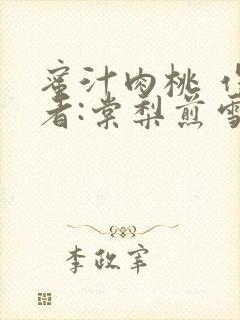 蜜汁肉桃 作
者:棠梨煎雪
李政宰